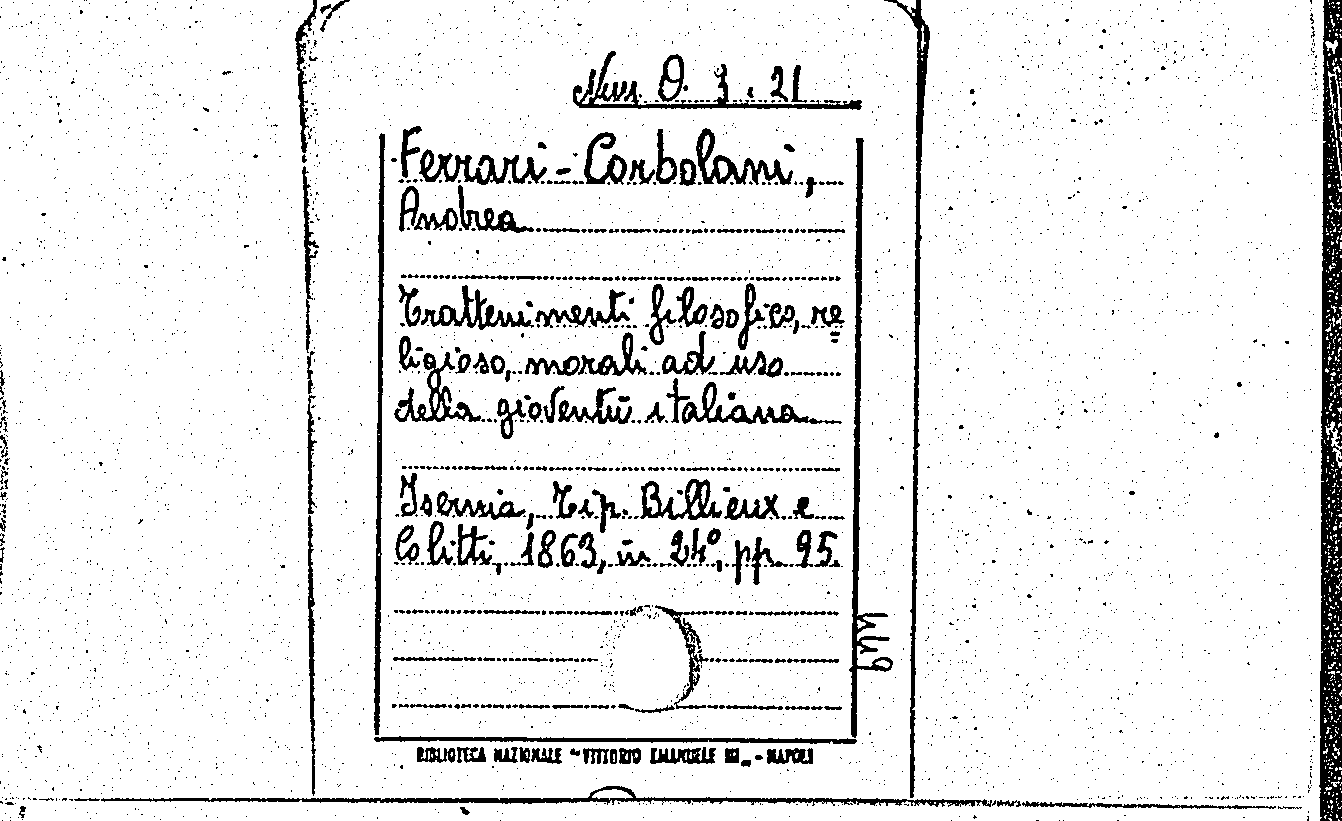 Nun. O. 3. 21
Ferrari-Corbolani,
Andrea
Trattenimenti filosofico, re=
ligioso, morali ad uso
della gioventù italiana
Isernia, Tip. Billieux e
Colitti, 1863, in 24°, pp. 95.
BIBLIOTECA NAZIONALE "VITTORIO EMANUELE III„ - NAPOLI